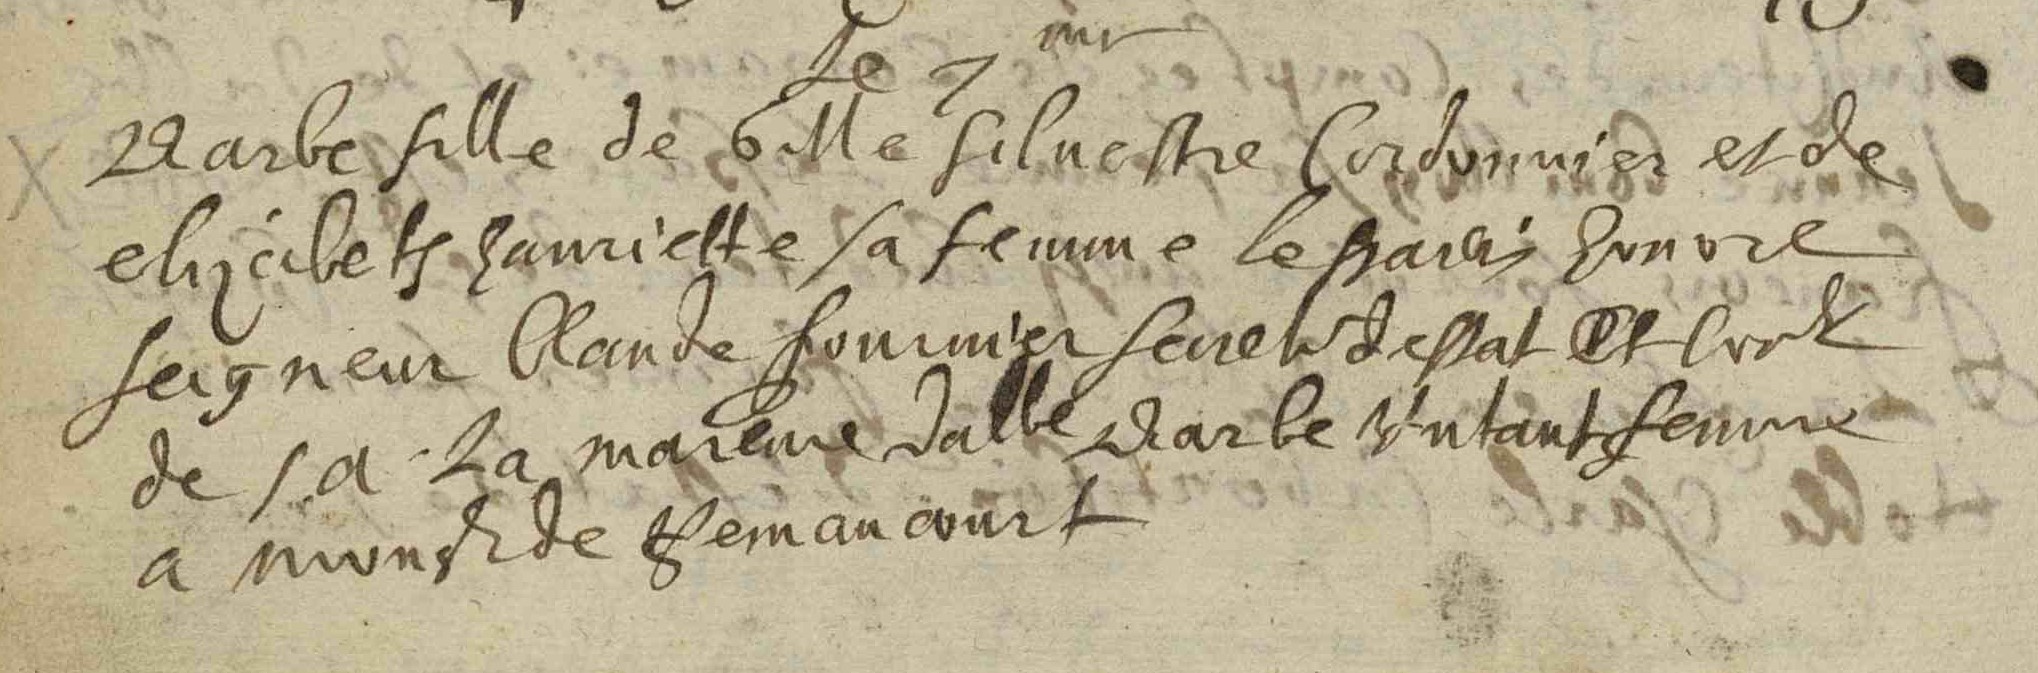 Le 7 me
Barbe fille de Gille Silvestre Cordonnier et de
elizabeth hanriette sa femme le parin honore
seigneur Claude fournier secret destat Et Cons
de s.a. La mareine dalle Barbe femme
a mons de Gemaucourt